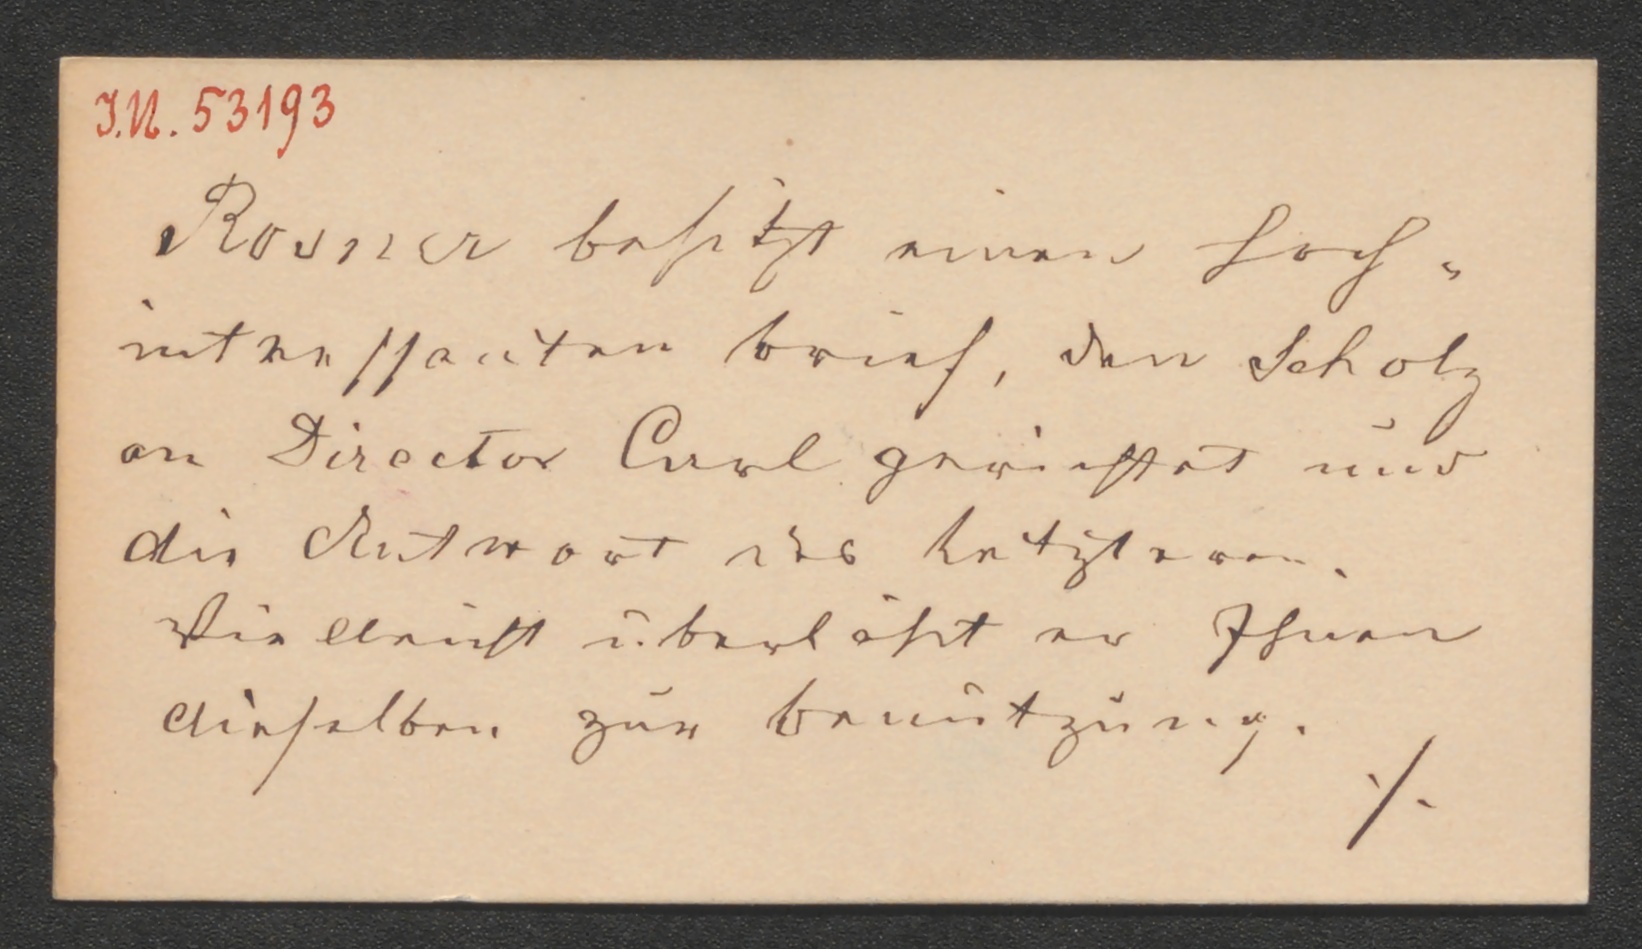 I.N. 53193
Rosner besitzt einen hoch-
intressanten Brief, den Scholz
an Director Carl gerichtet und
die Antwort des Letzteren.
Vielleicht überläßt er Ihnen
dieselben zur Benützung.
./.